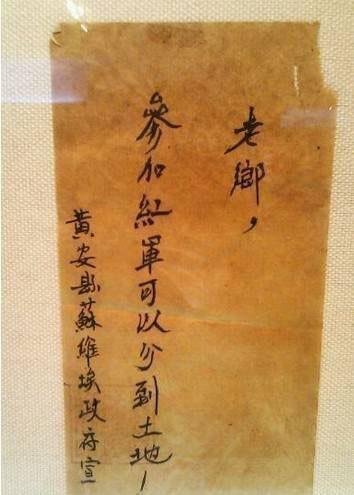 老鄉，
參加紅軍可以分到土地！
黄安縣蘇維埃政府宣